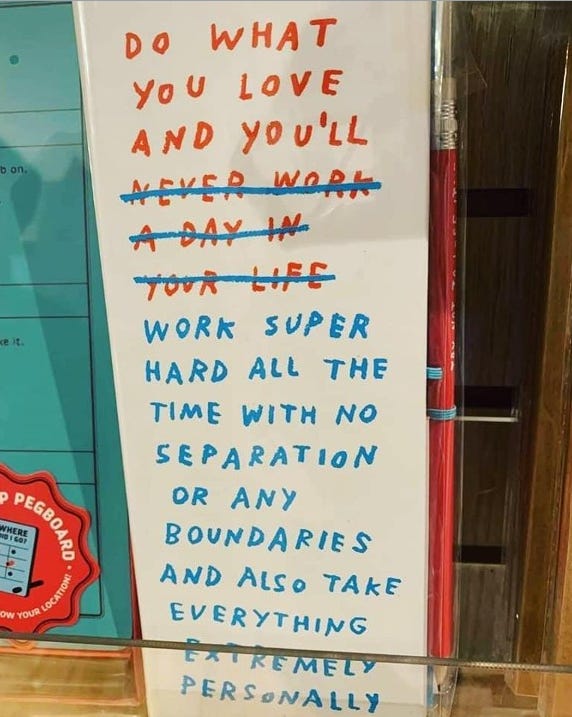 DO WHAT
YOU LOVE
AND YOU'LL
NEVER WORK
A DAY IN
YOUR LIFE
WORK SUPER
HARD ALL THE
TIME WITH NO
SEPARATION
OR ANY
BOUNDARIES
AND ALSO TAKE
EVERYTHING
EXTREMELY
PERSONALLY
b on.
ke it.
P PEGBOARD
WHERE
DID I GO?
OW YOUR LOCATION!